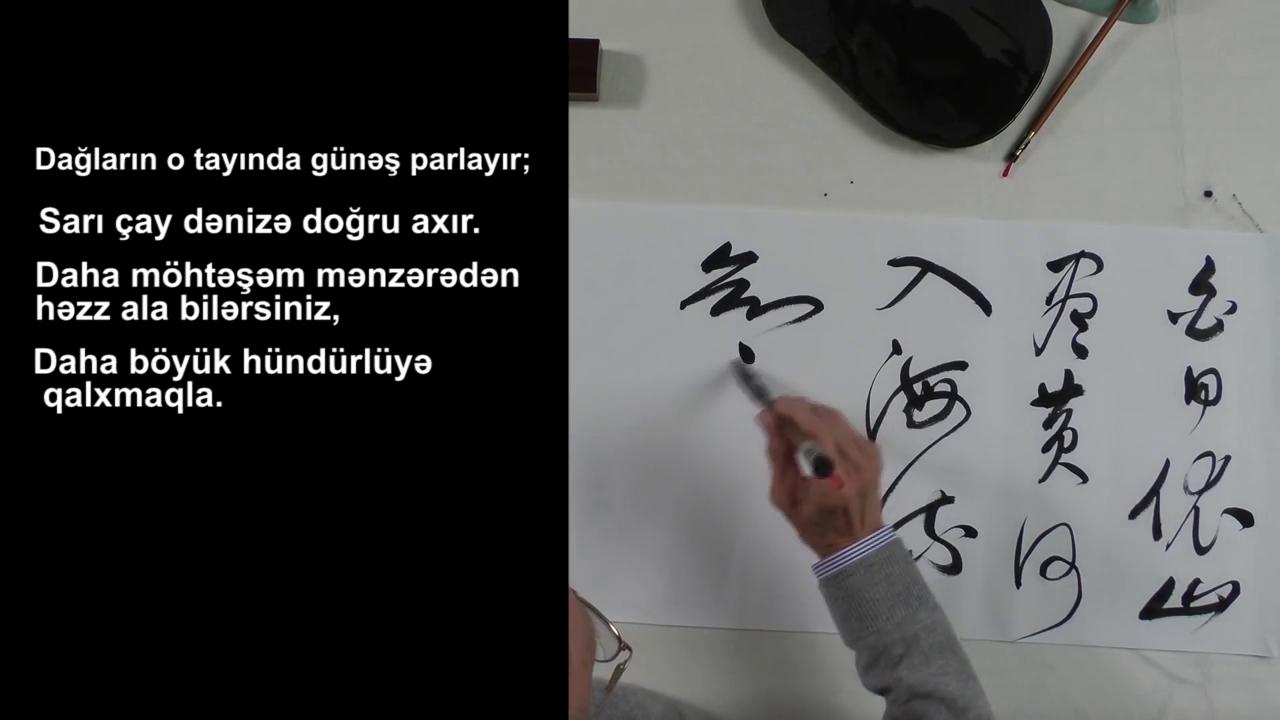 Dağların o tayında günəş parlayır;
Sarı çay dənizə doğru axır.
Daha möhtəşəm mənzərədən
həzz ala bilərsiniz,
Daha böyük hündürlüyə
qalxmaqla.
白日依山
尽黄河
入海流
欲